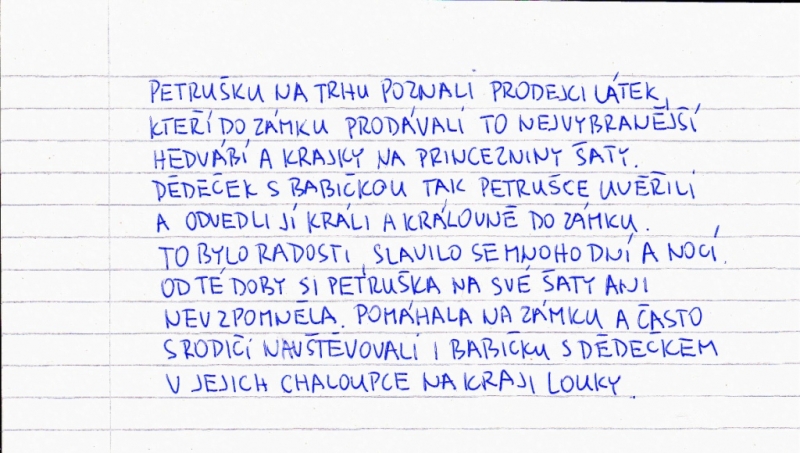 PETRUŠKU NA TRHU POZNALI PRODEJCI LÁTEK,
KTEŘÍ DO ZÁMKU PRODÁVALI TO NEJVYBRANĚJŠÍ
HEDVÁBÍ A KRAJKY NA PRINCEZNINY ŠATY.
DĚDEČEK S BABIČKOU TAK PETRUŠCE UVĚŘILI
A ODVEDLI JÍ KRÁLI A KRÁLOVNĚ DO ZÁMKU.
TO BYLO RADOSTI, SLAVILO SE MNOHO DNÍ A NOCÍ.
OD TÉ DOBY SI PETRUŠKA NA SVÉ ŠATY ANI
NEVZPOMNĚLA. POMÁHALA NA ZÁMKU A ČASTO
S RODIČI NAVŠTĚVOVALI I BABIČKU S DĚDEČKEM
V JEJICH CHALOUPCE NA KRAJI LOUKY.